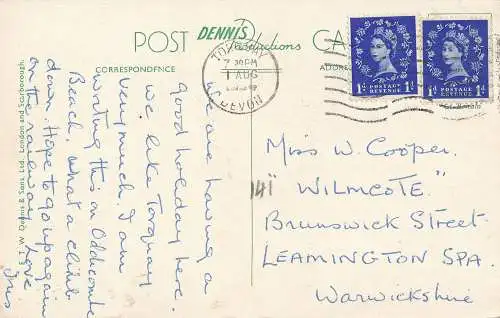 POST
DENNIS
Productions
CA
CORRESPONDENCE
ADDRE
TORQUAY
7 30PM
1 AUG
DEVON
1D POSTAGE REVENUE 1D
1D POSTAGE REVENUE 1D
We are having a
good holiday here.
We like Torquay
very much. I am
writing this on Oddicombe
Beach, what a climb
down. Hope to go up again
on the railway. Love
Iris
141
Miss W. Cooper.
"WILMCOTE"
Brunswick Street
LEAMINGTON SPA.
Warwickshire
Dennis & Sons, Ltd., London and Scarborough.